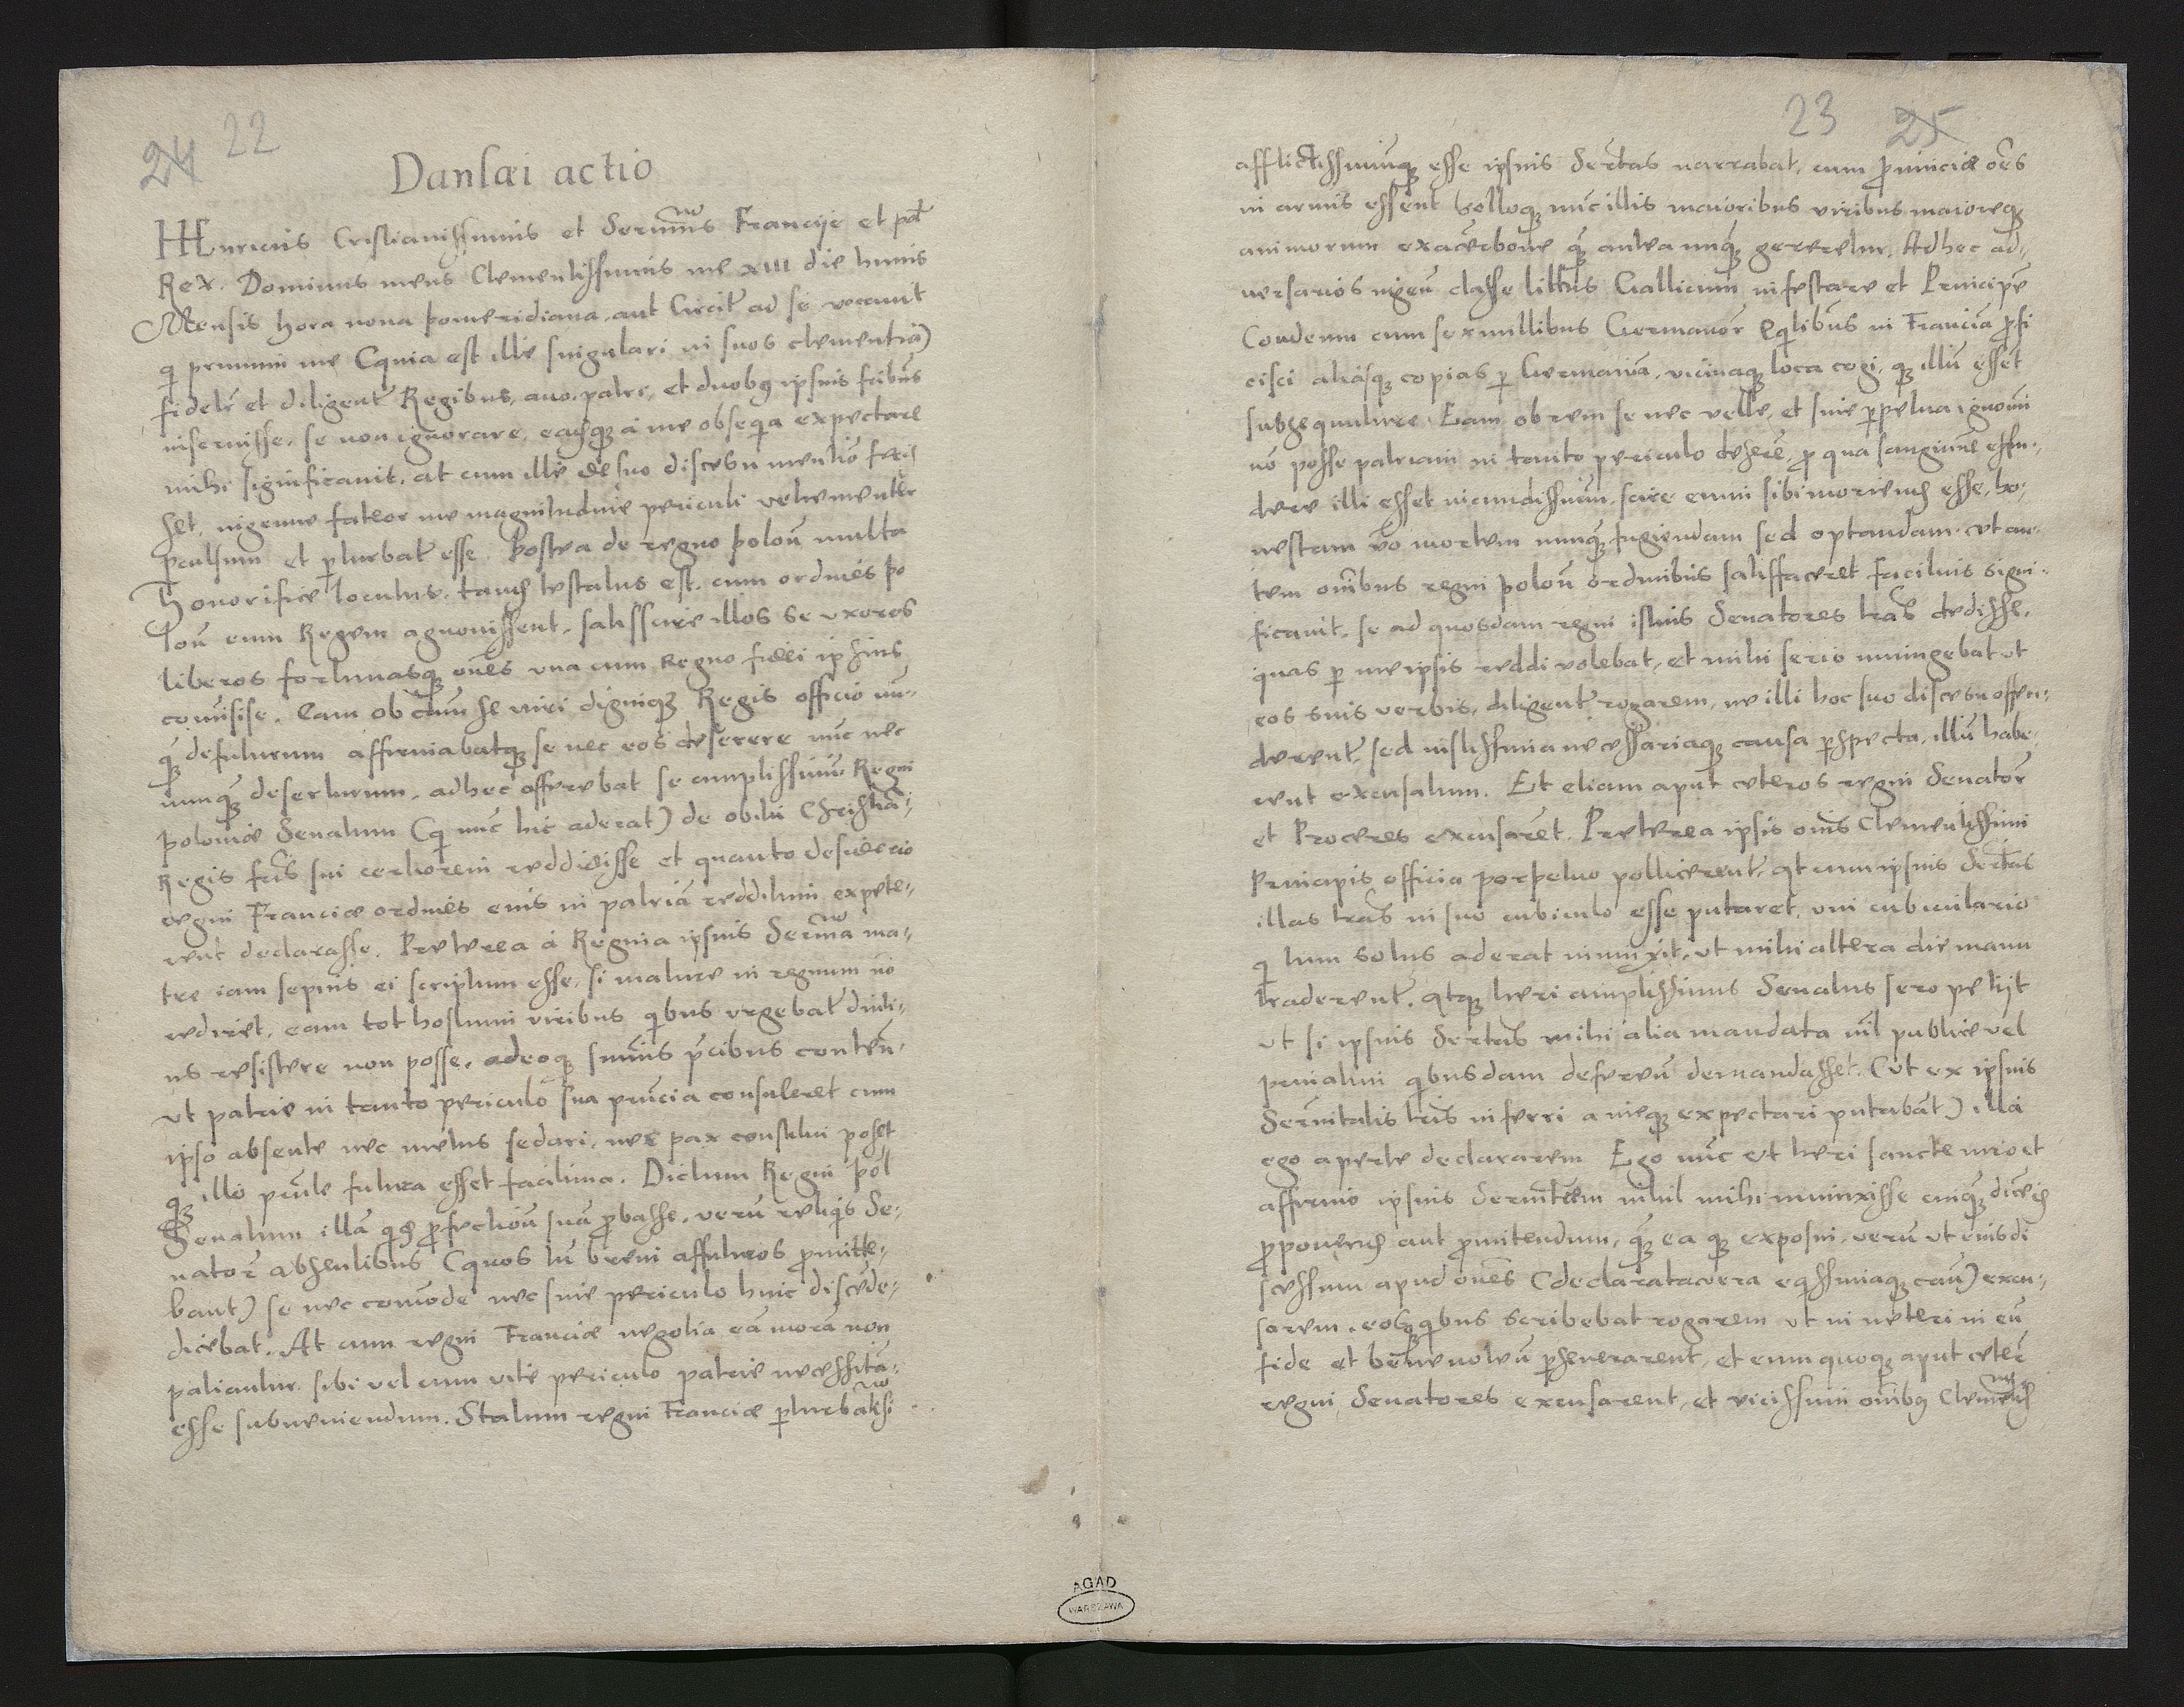 24 22
Dansæi actio
HEnricus Cristianissimus et Sermus Francije et pol
Rex. Dominus meus Clementissimus me XIII die huius
Mensis hora nona pomeridiana aut Circit ad se vocauit
q primum me (quia est ille singulari in suos clementia)
fidelr et diligent Regibus, auo, patri, et duobq ipsius fribus
inseruisse, se non ignorare, easqz a me obseqia expectare
mihi significauit, at cum ille de suo discesu mentio fecis
set, ingenue fateor me magnitudine periculi vehementer
pculsum et pturbat esse. Postea de regno polon multa
Honorifice locutus, tand testatus est, cum ordines po
lon eum Regem agnouissent, satis scire illos se vxores
liberos fortunasqz ones vna cum regno fidei ipsius
comisise. Eam ob cam se viri dignique Regis officio nu-
qz defuturum affirmabatqz se nec eos deserere nuc nec
nunqz deserturum, adhec offerebat se amplissimu Regni
poloniæ Senatum (q nuc hic aderat) de obitu Christia:
Regis fris sui certiorem reddidisse et quanto desiderio
regni Franciæ ordines eius in patria redditum expete-
rent declarasse. Preterea a Regina ipsius Serma ma-
tre iam sepius ei scriptum esse, si mature in regnum no
rediret, eam tot hostium viribus qbus vrgebat diuti-
us resistere non posse, adeoqz sumis pcibus conten-
vt patrie in tanto periculo sua pncia consuleret cum
ipso absente nec metus sedari, nec pax constitui poset
qz illo pnte futura esset facilima. Dictum Regni Pol
Senatum illa qd pfection sua pbasse, veru reliqis Se-
nator absentibus (quos tu breui affuturos pmitte-
bant) se nec comode nec sine periculo huic discede-
dicebat. At cum regni Franciæ negotia ea mora non
patiantur sibi vel cum vite periculo patrie necessita-
esse subueniendum. Statum regni Franciæ pturbatissi
23 25
afflictissimuqz esse ipsius Sertas narrabat, cum puinciæ oes
in armis essent belloqz nuc illis maioribus viribus maioreqz
animorum exacerbone qz antea nunqz gereretur. Ad hec ad-
uersarios ingen classe littus Gallicum infestare et Principe
Condeum cum sex millibus Germanor Eqitibus in Francia pfi
cisci aliasqz copias p Germania, vicinaqz loca cogi, qz illu essent
subsequuture. Eam ob rem se nec velle, et sine ppetua ignomi
no posse patriam in tanto periculo desere, p qua sanguine effu-
dere illi esset iucundissimu, scire enim sibi moriend esse, ho-
nestam vo mortem nunqz fugiendam sed optandam. vt au-
tem omibus regni polon ordinibus satisfaceret facilius signi-
ficauit, se ad quosdam regni istius Senatores tras dedisse,
quas p me ipsis reddi volebat, et mihi serio iniungebat vt
eos suis verbis, diligent rogarem, ne illi hoc suo discesu offen-
derent, sed iustissima necessariaqz causa pspecta, illu habe-
rent excusatum. Et etiam aput ceteros regni Senator
et Proceres excusaret. Preterea ipsis omis Clementissimi
Principis officia porpetuo pollicerent, qt cum ipsius Sertas
illas tras in suo cubiculo esse putaret, uni cubiculario
q tum solus aderat iniunxit, vt mihi altera die manu
traderent, atqz heri amplissimus Senatus sero petijt
vt si ipsius Sertas mihi alia mandata vel publice vel
priuatim qbusdam deferen demandasset. (vt ex ipsius
Sermitatis tris inferri a meqz expectari putabat) illa
ego aperte declararem Ego nuc vt heri sancte iuro et
affirmo ipsius Sermtem nihil mihi iniunxisse cuiqz dicend
pponend aut pmitendum, qz ea qz exposui, veru vt eius di
scessum apud ones (declarata vera eqissimaqz cau) excu-
sarem, eosqz qbus scribebat rogarem vt in veteri in eu
fide et beneuolen pseuerarent, et eum quoqz aput ceter
regni Senatores excusarent, et vicissim omibq
AGAD
WARSZAWA